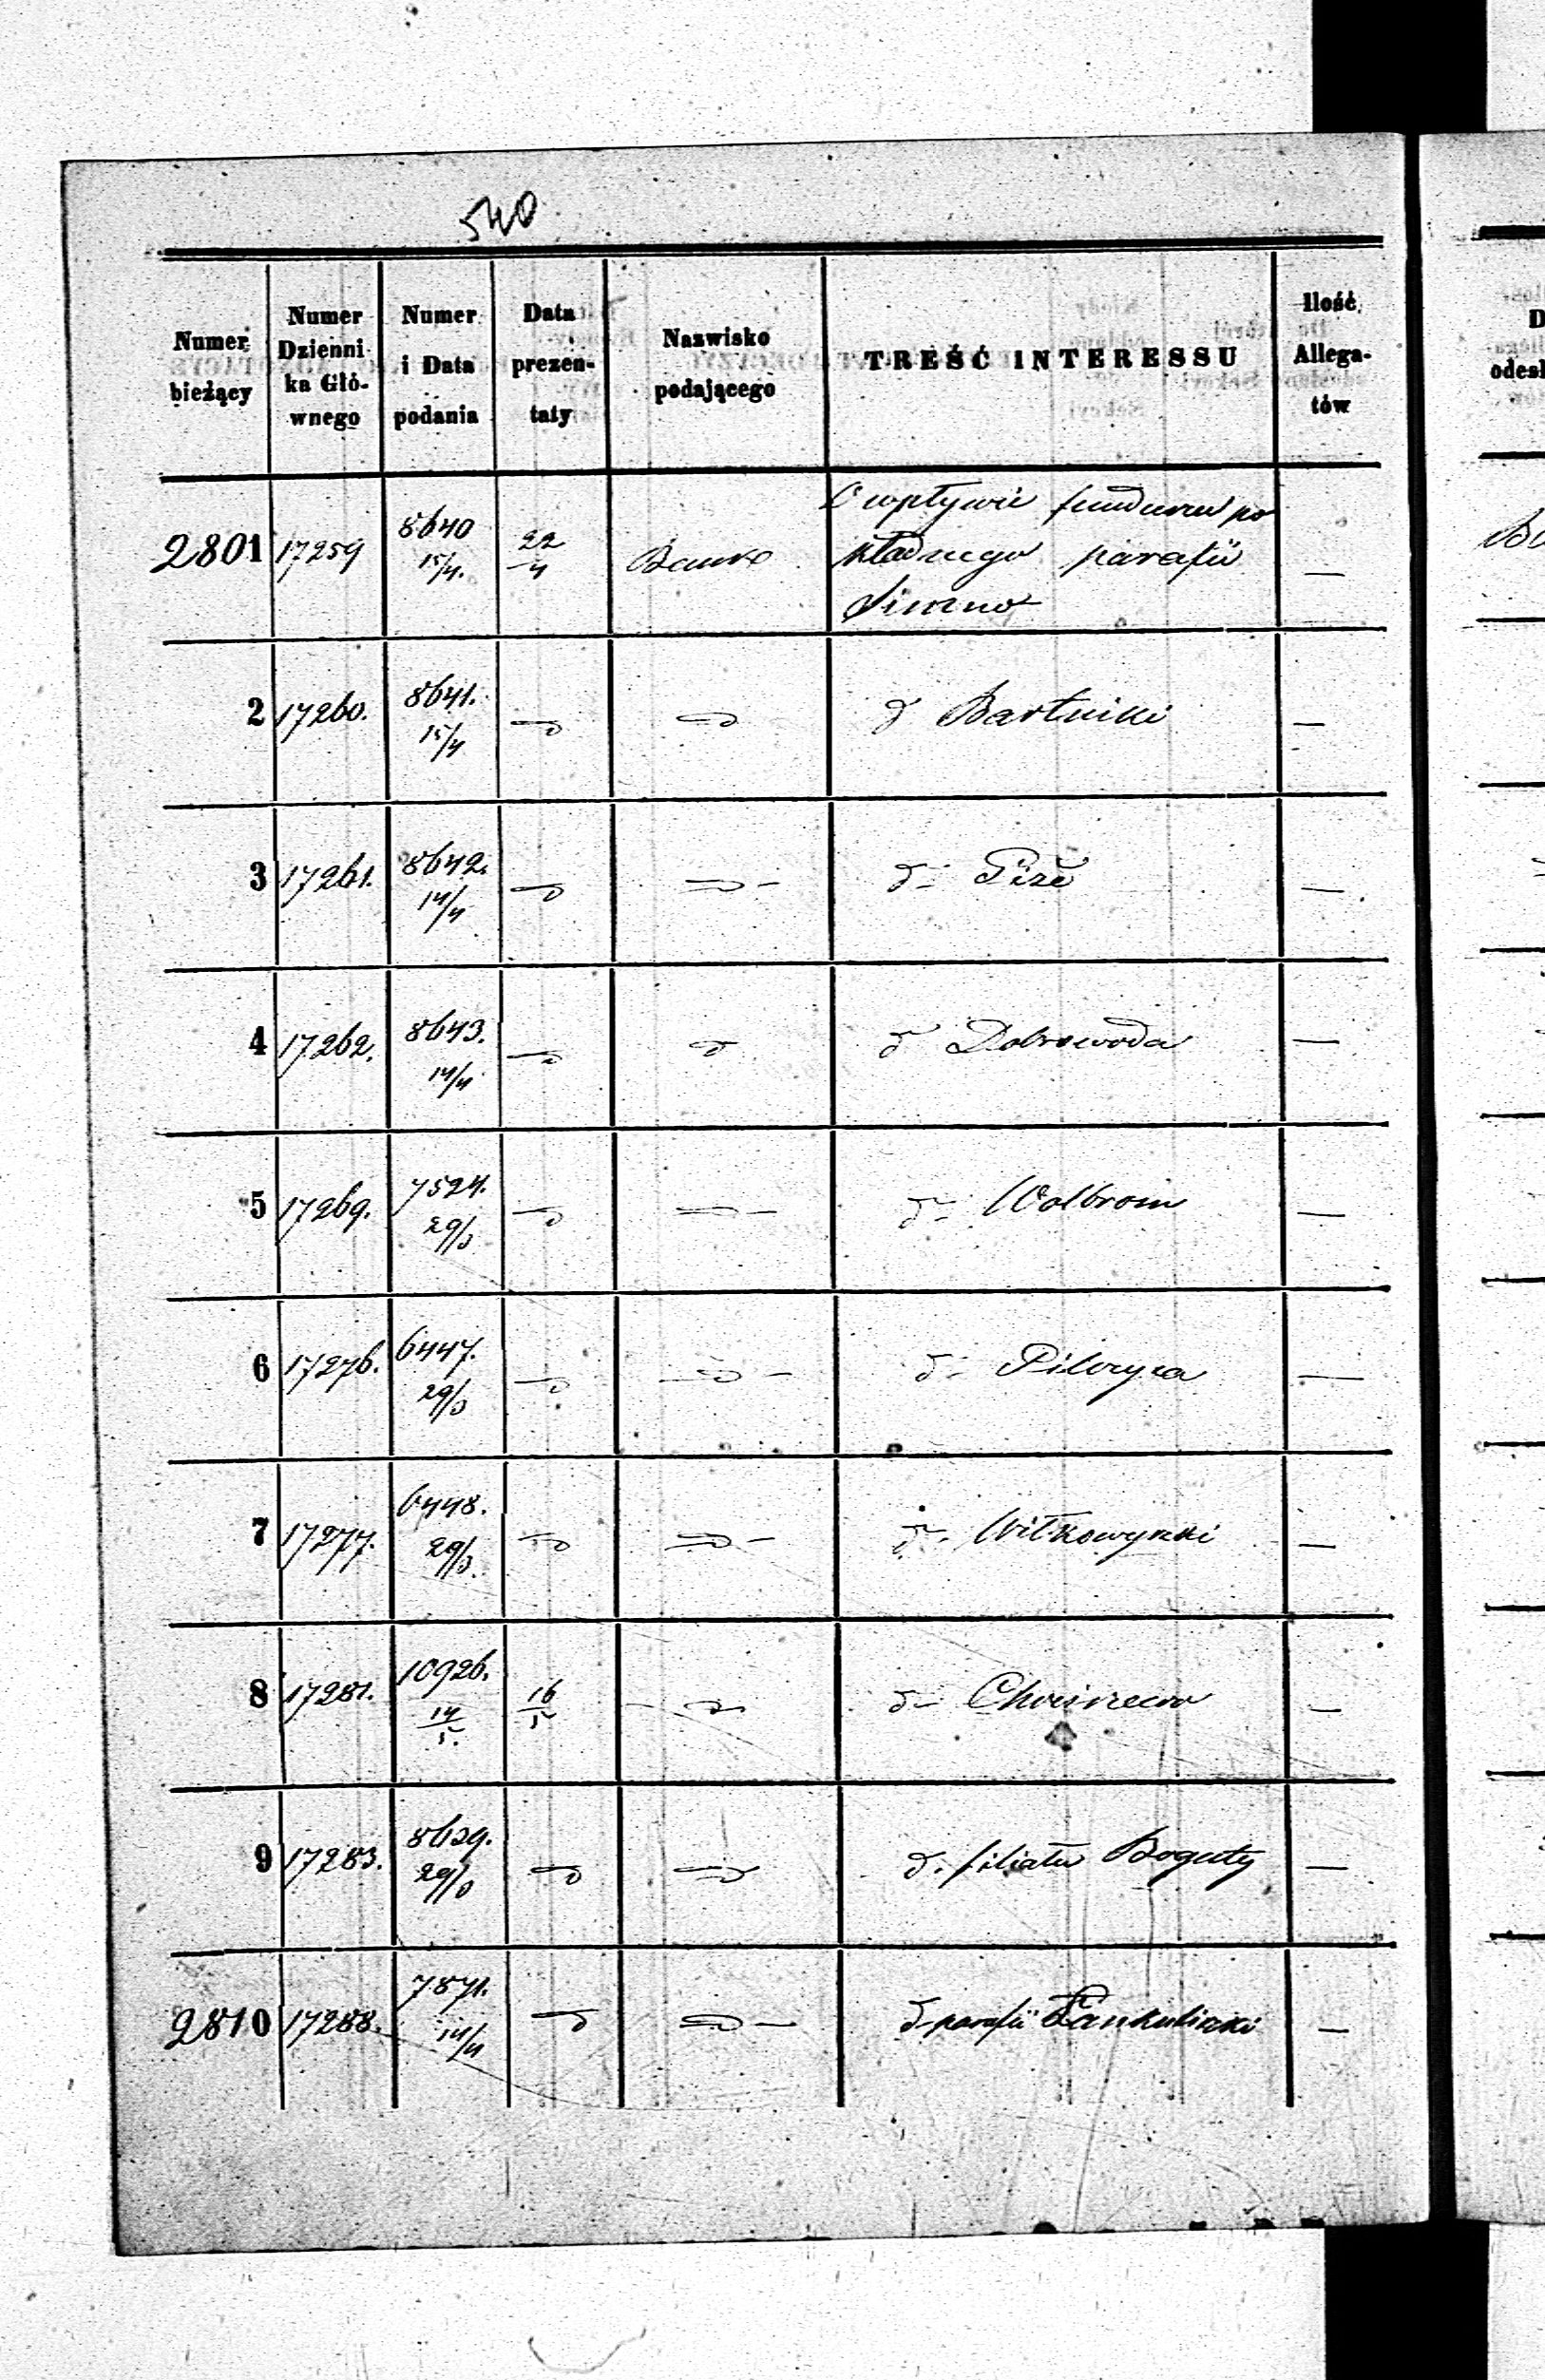 540
Numer bieżący | Numer Dzienni ka Głó- wnego | Numer i Data podania | Data prezen- taty | Nazwisko podającego | TREŚĆ INTERESSU | Ilość Allega- tów
2801 | 17259 | 8640 15/4. | 22/4 | Banko | O wpływie funduszu po
kładnego parafii
Simno | —
2 | 17260. | 8641. 15/4 | d | d | d Bartniki | —
3 | 17261. | 8642. 14/4 | d | d - | d: | —
4 | 17262. | 8643. 14/4 | d | d | d Dobrowoda | —
5 | 17269. | 7524. 29/3 | d | d - | d: Wolbrom | —
6 | 17276. | 6447. 29/3 | d | d - | d: Pilczyca | —
7 | 17277. | 6448. 29/3. | d | d - | d: Wiłkowyszki | —
8 | 17281. | 10926. 14/5. | 16/5 | d | d - | —
9 | 17283. | 8629. 29/3 | d | d | d. filiału Boguty | —
2810 | 17288. | 7871. 14/4 | d | d - | d parafii Łankieliszki | —